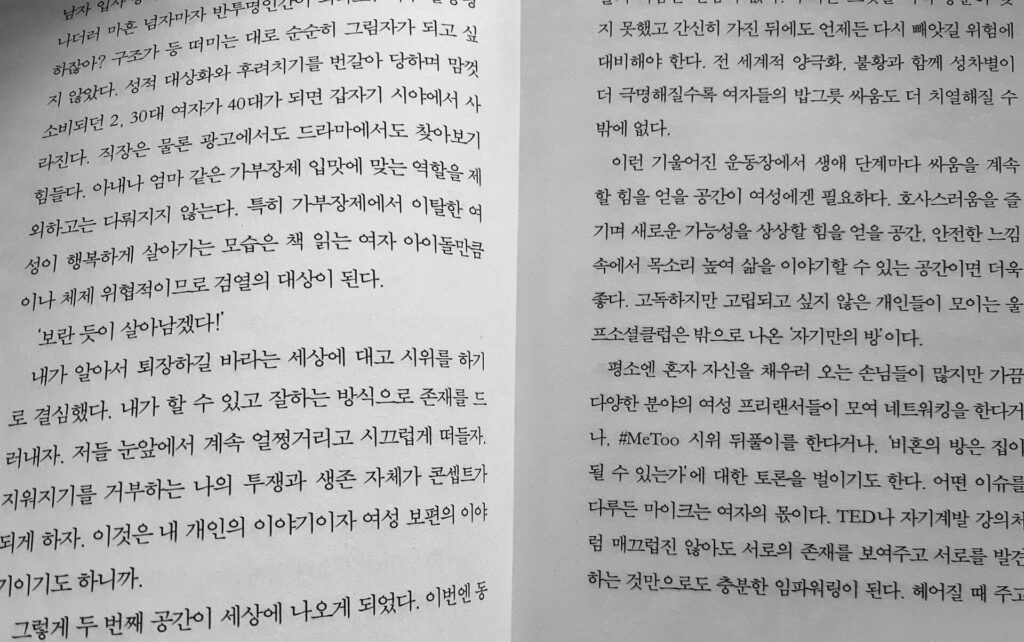 나더러 마흔 넘자마자 반투명인간이
하잖아? 구조가 등 떠미는 대로 순순히 그림자가 되고 싶
지 않았다. 성적 대상화와 후려치기를 번갈아 당하며 맘껏
소비되던 2, 30대 여자가 40대가 되면 갑자기 시야에서 사
라진다. 직장은 물론 광고에서도 드라마에서도 찾아보기
힘들다. 아내나 엄마 같은 가부장제 입맛에 맞는 역할을 제
외하고는 다뤄지지 않는다. 특히 가부장제에서 이탈한 여
성이 행복하게 살아가는 모습은 책 읽는 여자 아이돌만큼
이나 체제 위협적이므로 검열의 대상이 된다.
‘보란 듯이 살아남겠다!’
내가 알아서 퇴장하길 바라는 세상에 대고 시위를 하기
로 결심했다. 내가 할 수 있고 잘하는 방식으로 존재를 드
러내자. 저들 눈앞에서 계속 얼쩡거리고 시끄럽게 떠들자.
지워지기를 거부하는 나의 투쟁과 생존 자체가 콘셉트가
되게 하자. 이것은 내 개인의 이야기이자 여성 보편의 이야
기이기도 하니까.
그렇게 두 번째 공간이 세상에 나오게 되었다. 이번엔 동
지 못했고 간신히 가진 뒤에도 언제든 다시 빼앗길 위험에
대비해야 한다. 전 세계적 양극화, 불황과 함께 성차별이
더 극명해질수록 여자들의 밥그릇 싸움도 더 치열해질 수
밖에 없다.
이런 기울어진 운동장에서 생애 단계마다 싸움을 계속
할 힘을 얻을 공간이 여성에겐 필요하다. 호사스러움을 즐
기며 새로운 가능성을 상상할 힘을 얻을 공간, 안전한 느낌
속에서 목소리 높여 삶을 이야기할 수 있는 공간이면 더욱
좋다. 고독하지만 고립되고 싶지 않은 개인들이 모이는 울
프소셜클럽은 밖으로 나온 ‘자기만의 방’이다.
평소엔 혼자 자신을 채우러 오는 손님들이 많지만 가끔
다양한 분야의 여성 프리랜서들이 모여 네트워킹을 한다거
나, #MeToo 시위 뒤풀이를 한다거나, ‘비혼의 방은 집이
될 수 있는가’에 대한 토론을 벌이기도 한다. 어떤 이슈를
다루든 마이크는 여자의 몫이다. TED나 자기계발 강의처
럼 매끄럽진 않아도 서로의 존재를 보여주고 서로를 발견
하는 것만으로도 충분한 임파워링이 된다. 헤어질 때 주고